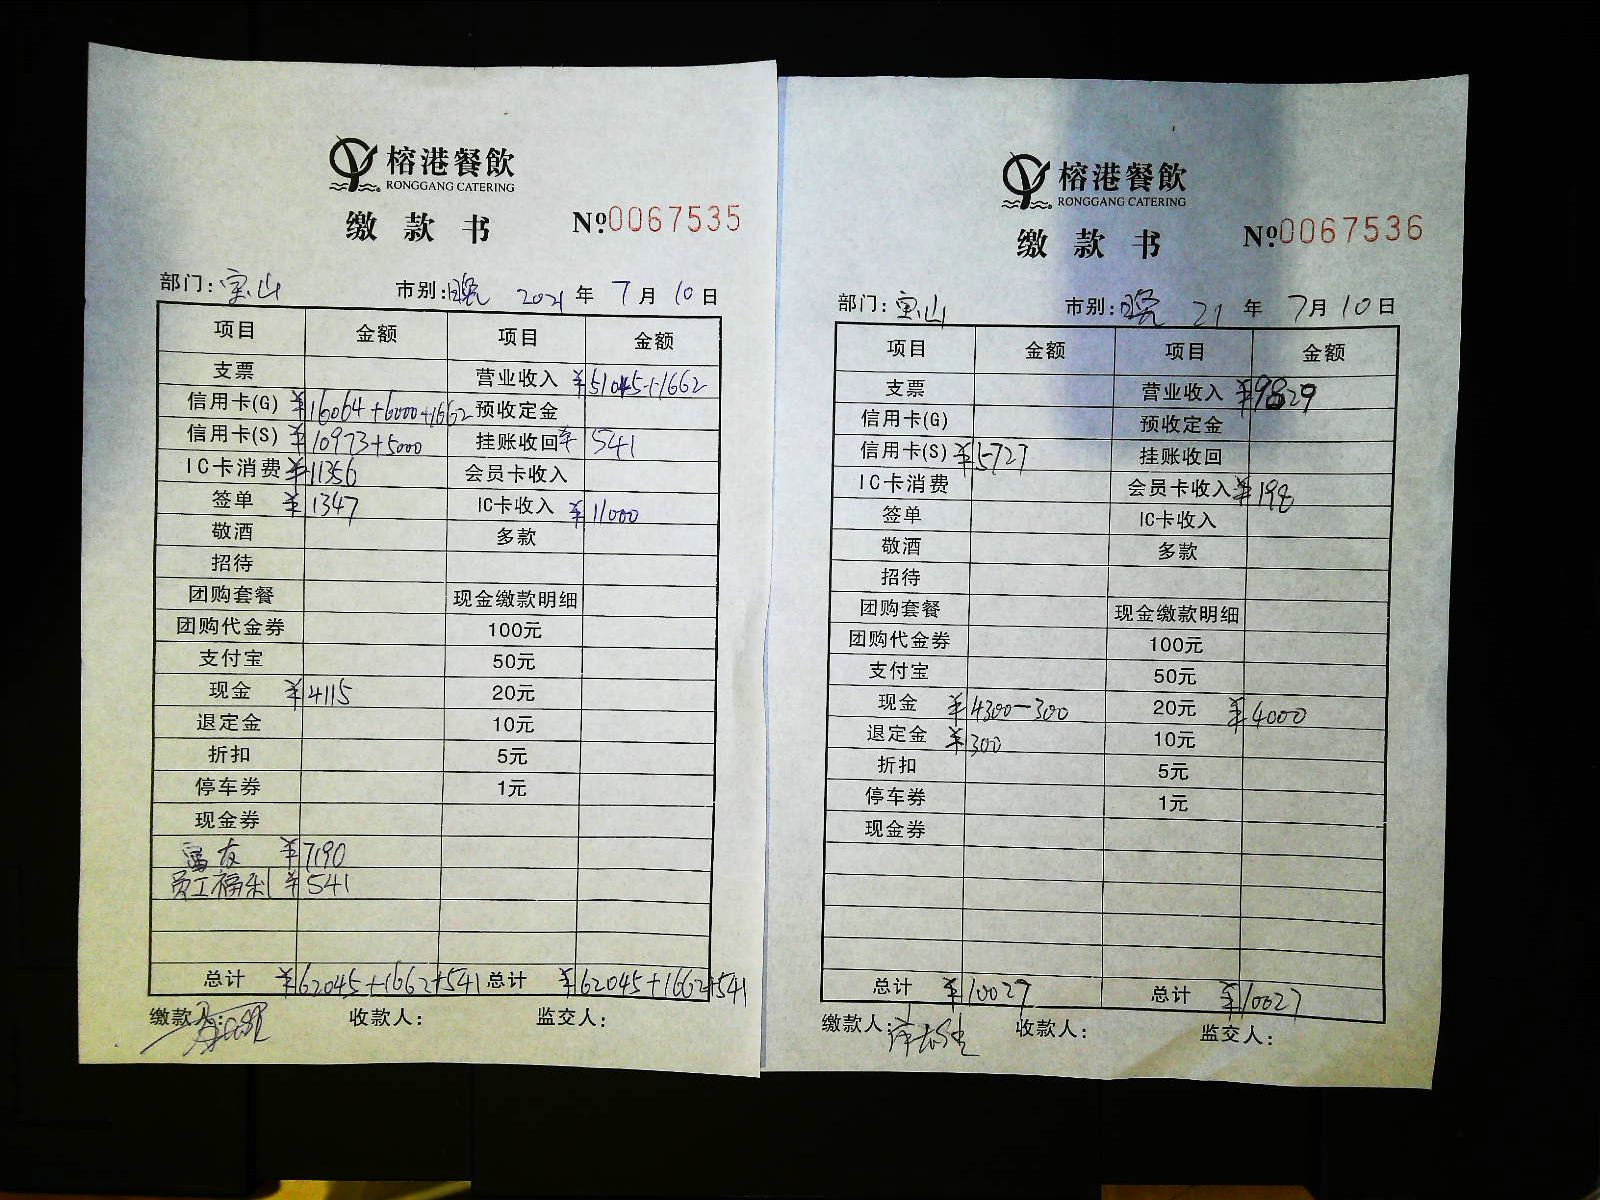 榕港餐飲
RONGGANG CATERING
缴款书 №0067535
部门:宝山 市别:晚 2021年7月10日
项目 金额 项目 金额
支票 营业收入 ¥51045+1662
信用卡(G) ¥16064+6000+1662 预收定金
信用卡(S) ¥10973+5000 挂账收回 ¥541
IC卡消费 ¥11356 会员卡收入
签单 ¥1347 IC卡收入 ¥11000
敬酒 多款
招待
团购套餐 现金缴款明细
团购代金券 100元
支付宝 50元
现金 ¥4115 20元
退定金 10元
折扣 5元
停车券 1元
现金券
富友 ¥7190
员工福利 ¥541
总计 ¥62045+1662+541 总计 ¥62045+1662+541
缴款人: 收款人: 监交人:
榕港餐飲
RONGGANG CATERING
缴款书 №0067536
部门:宝山 市别:晚 21年7月10日
项目 金额 项目 金额
支票 营业收入 ¥9829
信用卡(G) 预收定金
信用卡(S) ¥5727 挂账收回
IC卡消费 会员卡收入 ¥198
签单 IC卡收入
敬酒 多款
招待
团购套餐 现金缴款明细
团购代金券 100元
支付宝 50元
现金 ¥4300-300 20元 ¥4000
退定金 ¥300 10元
折扣 5元
停车券 1元
现金券
总计 ¥10027 总计 ¥10027
缴款人: 收款人: 监交人: